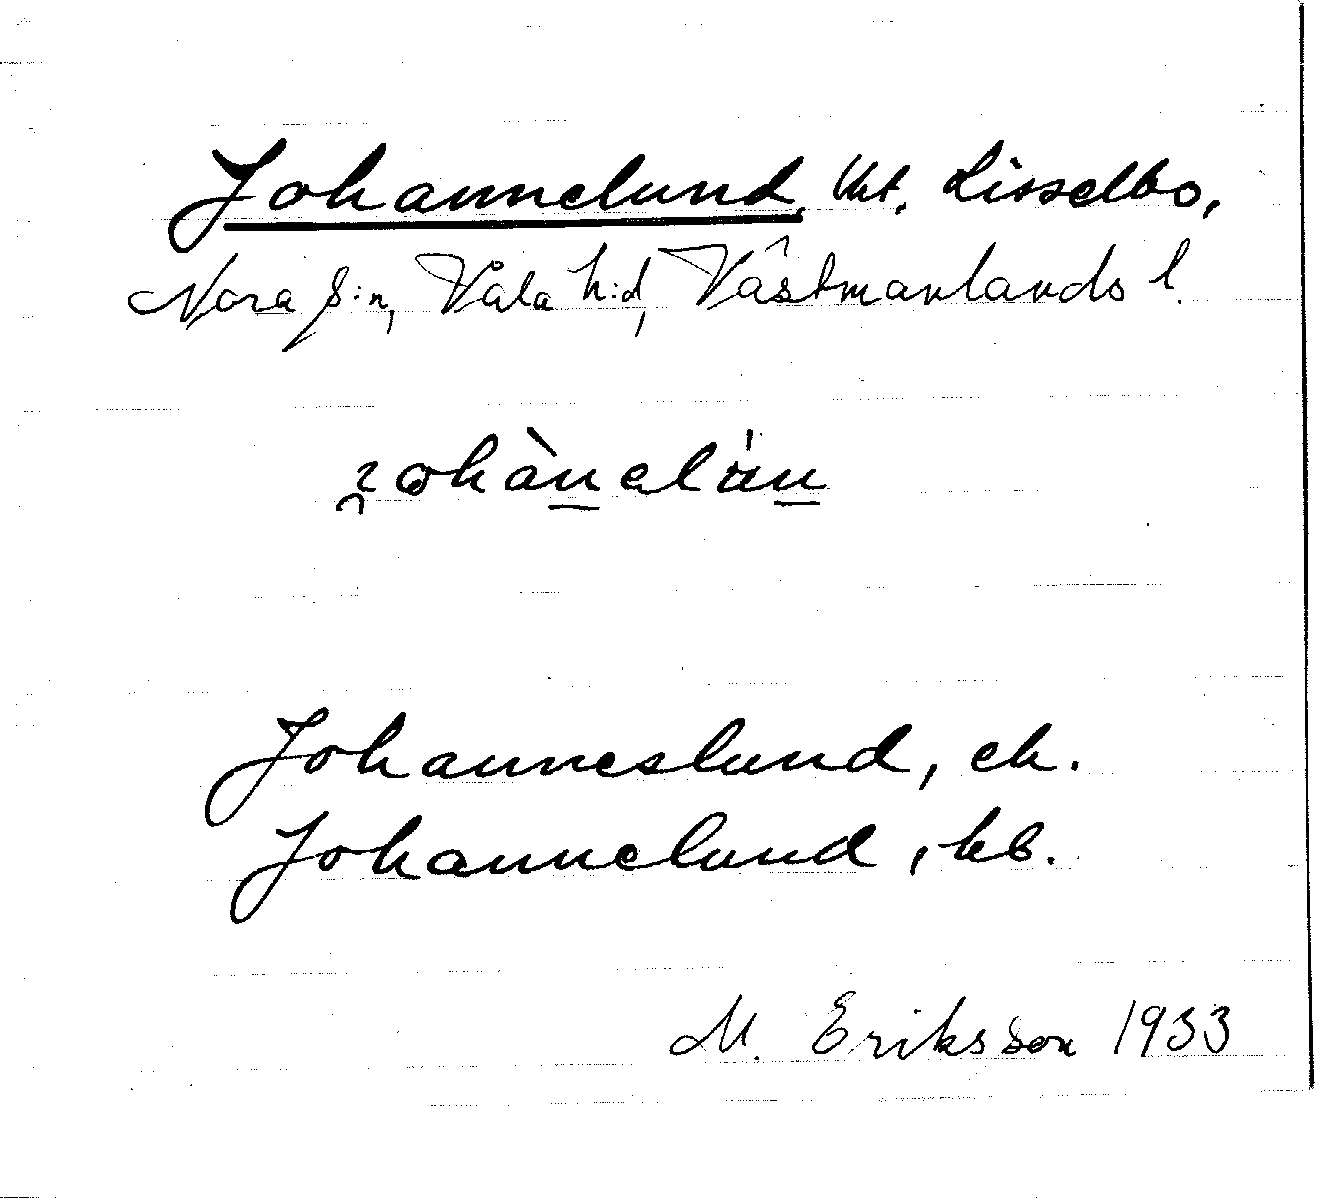 Johannelund, Utt. Lisselbo,
Nora s:n, Våla h:d, Västmanlands l.
Johanneslund, ek.
Johannelund, kb.
M. Eriksson 1933